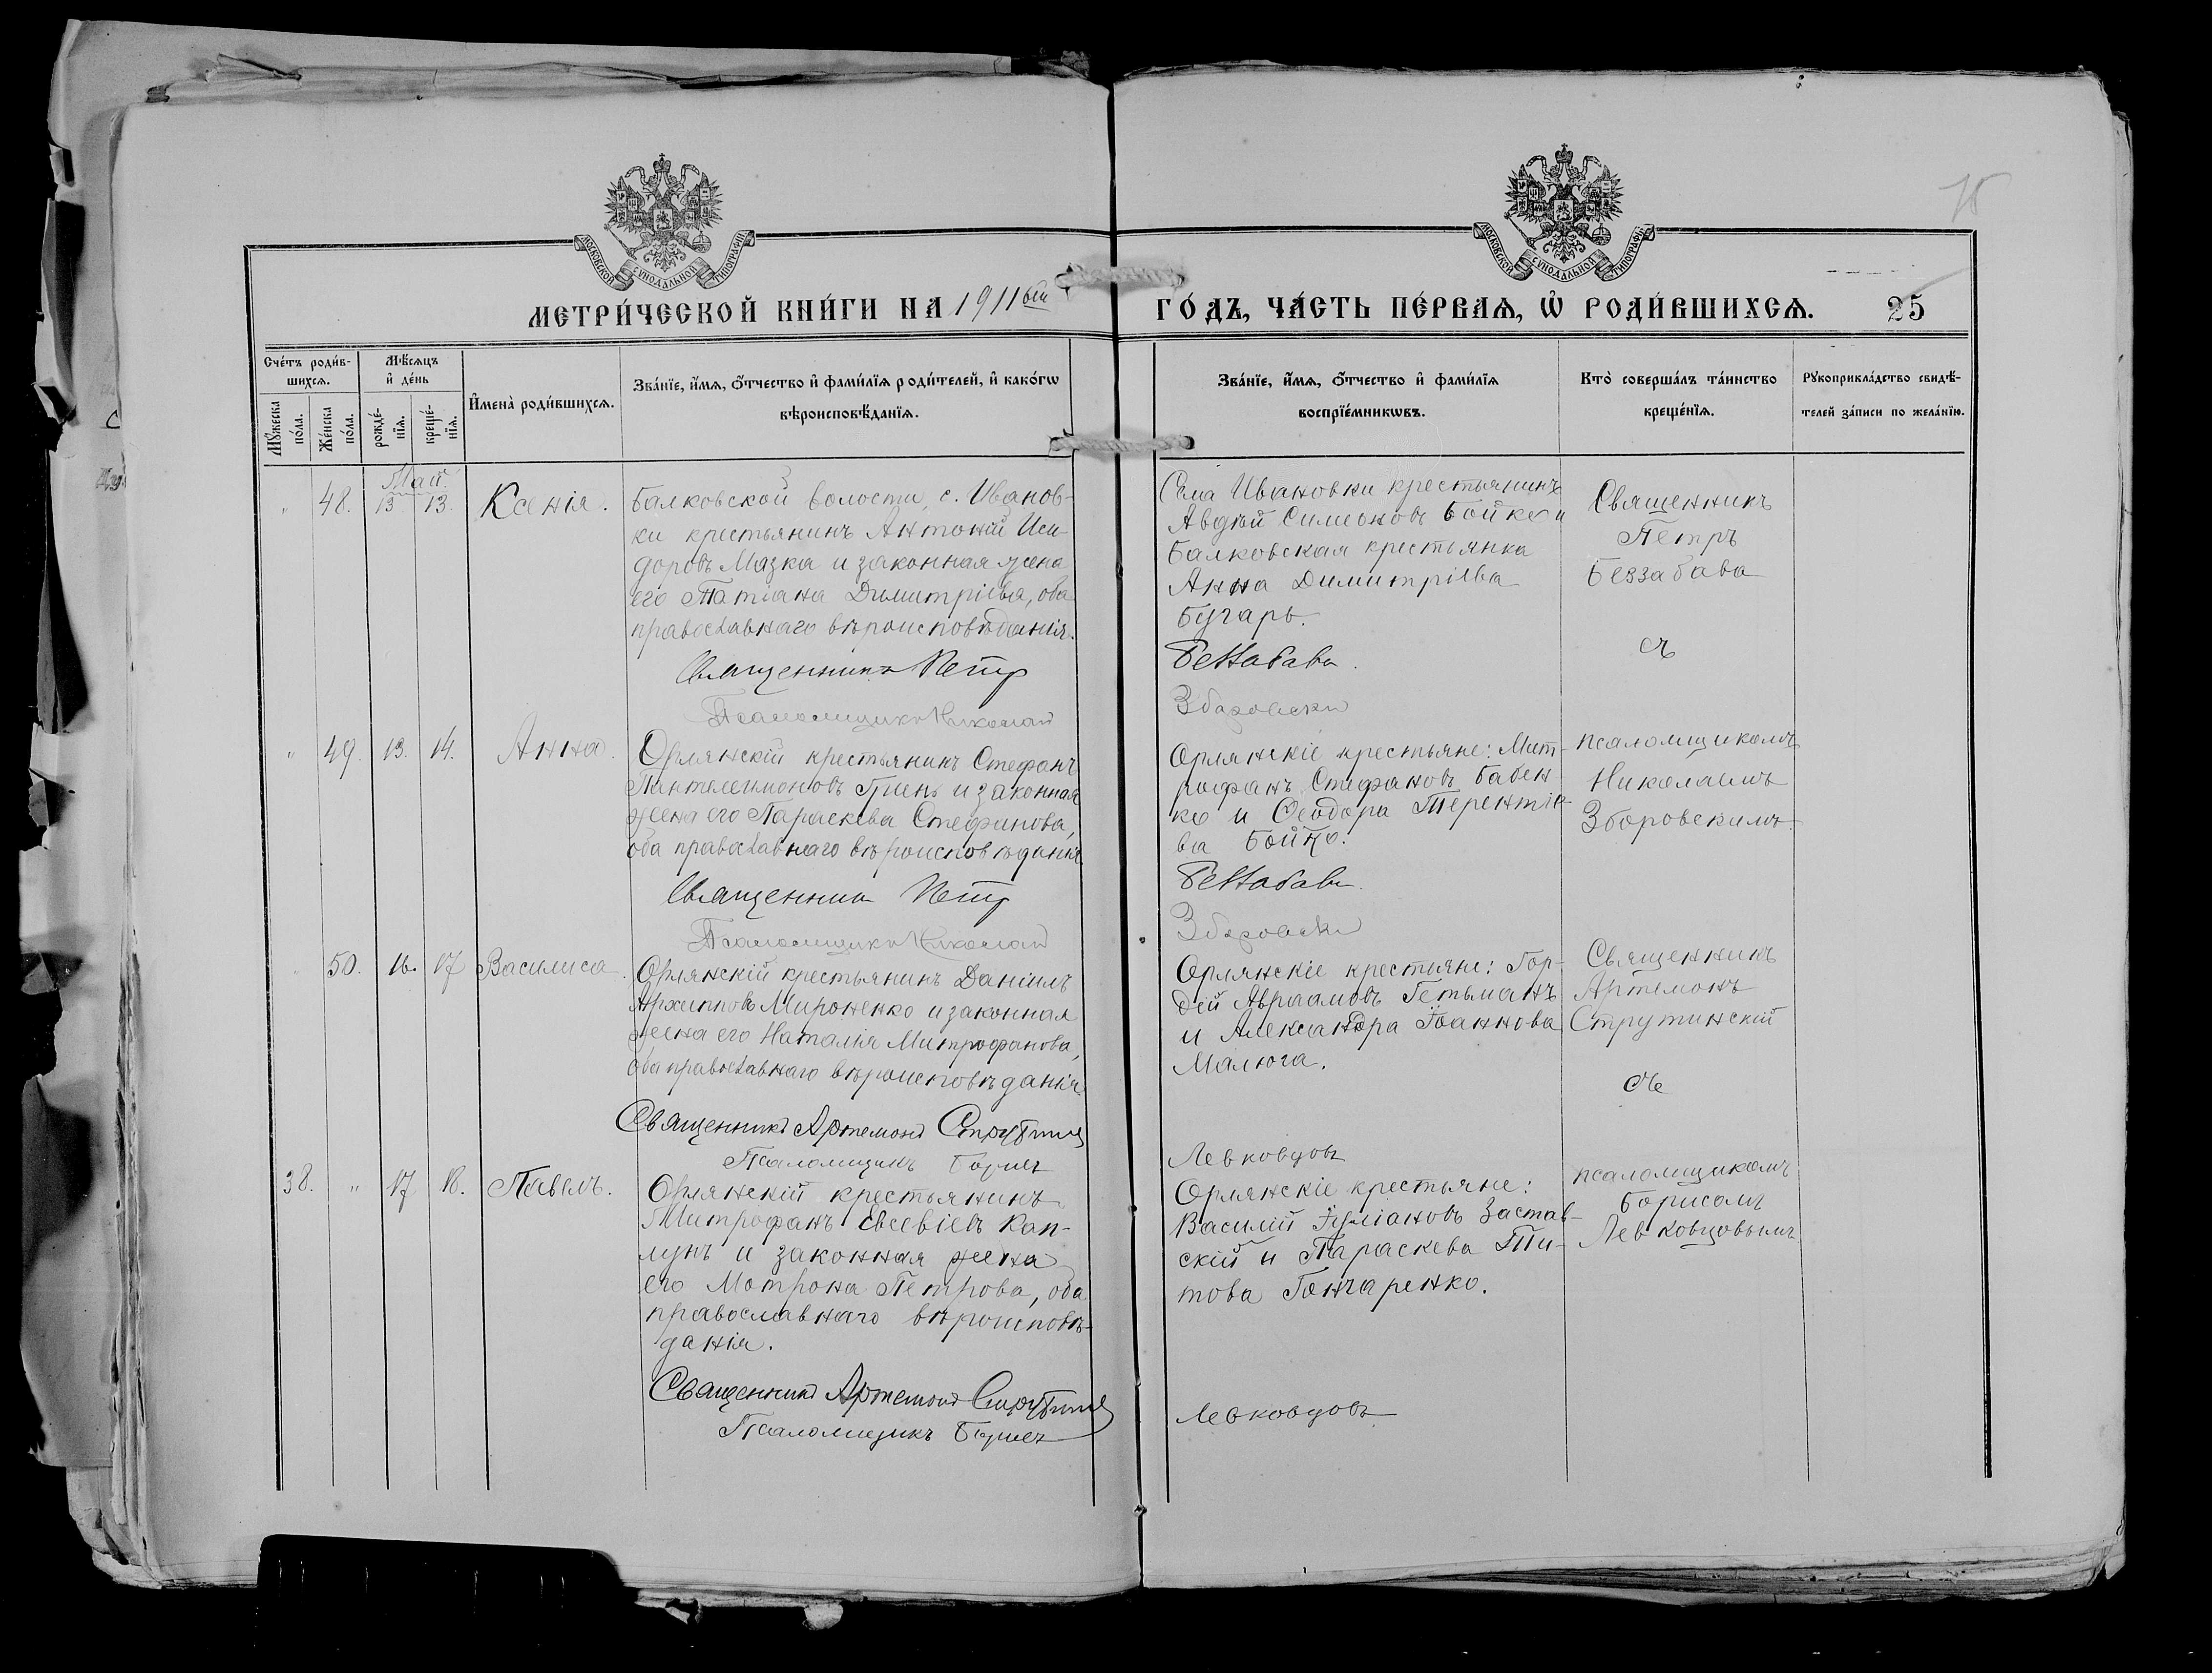 МОСКОВСКОЙ СѴНОДАЛЬНОЙ ТИПОГРАФІИ
МОСКОВСКОЙ СѴНОДАЛЬНОЙ ТИПОГРАФІИ
МЕТРИ́ЧЕСКОЙ КНИ́ГИ НА 1911ый ГО́ДЪ, ЧА́СТЬ ПЕ́РВАѦ, Ѡ҆ РОДИ́ВШИХСѦ. 25
Сче́тъ роди́в-
шихсѧ.
Мꙋ́жеска по́ла.
Же́нска по́ла.
Мѣ́сѧцъ
и҆ де́нь
рожде́-
нїѧ.
креще́-
нїѧ.
И҆мена̀ роди́вшихсѧ.
Зва́нїе, и҆́мѧ, о҆́тчество и҆ фами́лїѧ роди́телей, и҆ како́гѡ
вѣроисповѣ́данїѧ.
Зва́нїе, и҆́мѧ, о҆́тчество и҆ фами́лїѧ
воспрїе́мникѡвъ.
Кто̀ соверша́лъ та́инство
креще́нїѧ.
Рꙋкоприкла́дство свидѣ́-
телей за́писи по жела́нїю.
Май.
" 48. 13 13. Ксенія.
Балковской волости, с. Иванов-
ки крестьянинъ Антоній Иси-
доровъ Мазка и законная жена
его Татіана Димитріева, оба
православнаго вѣроисповѣданія.
Священникъ Петр
Псаломщикъ Николай
Села Ивановки крестьянинъ
Авдѣй Симеоновъ Бойко и
Балковская крестьянка
Анна Димитріева
Бугарь.
Беззабава.
Збаровски
Священникъ
Петръ
Беззабава
съ
" 49. 13. 14. Анна.
Орлянскій крестьянинъ Стефанъ
Пантелеимоновъ и законная
жена его Параскева Стефанова,
оба православнаго вѣроисповѣданія
Священник Петр
Псаломщикъ Николай
Орлянскіе крестьяне: Мит-
рофанъ Стефановъ Бабен-
ко и Ѳеодора Терентіе-
ва Бойко.
Беззабава.
Збаровски
псаломщикомъ
Николаемъ
Зборовскимъ.
" 50. 16. 17 Василиса.
Орлянскій крестьянинъ Даніилъ
Архипповъ Мироненко и законная
жена его Наталія Митрофанова,
оба православнаго вѣроисповѣданія.
Священникъ Артемонъ Струтинск
Псаломщикъ Борисъ
Орлянскіе крестьяне: Гор-
дій Авраамовъ Гетьманъ
и Александра Іоаннова
Малюга.
Левковцовъ
Священникъ
Артемонъ
Струтинскій
съ
38. " 17 18. Павелъ.
Орлянскій крестьянинъ
Митрофанъ Евсевіевъ Кап-
лунъ и законная жена
его Матрона Петрова, оба
православнаго вѣроисповѣ-
данія.
Священникъ Артемонъ Струтинск
Псаломщикъ Борисъ
Орлянскіе крестьяне:
Василій Іуліановъ Застав-
скій и Параскева Ти-
това Гончаренко.
Левковцовъ
псаломщикомъ
Борисомъ
Левковцовымъ.